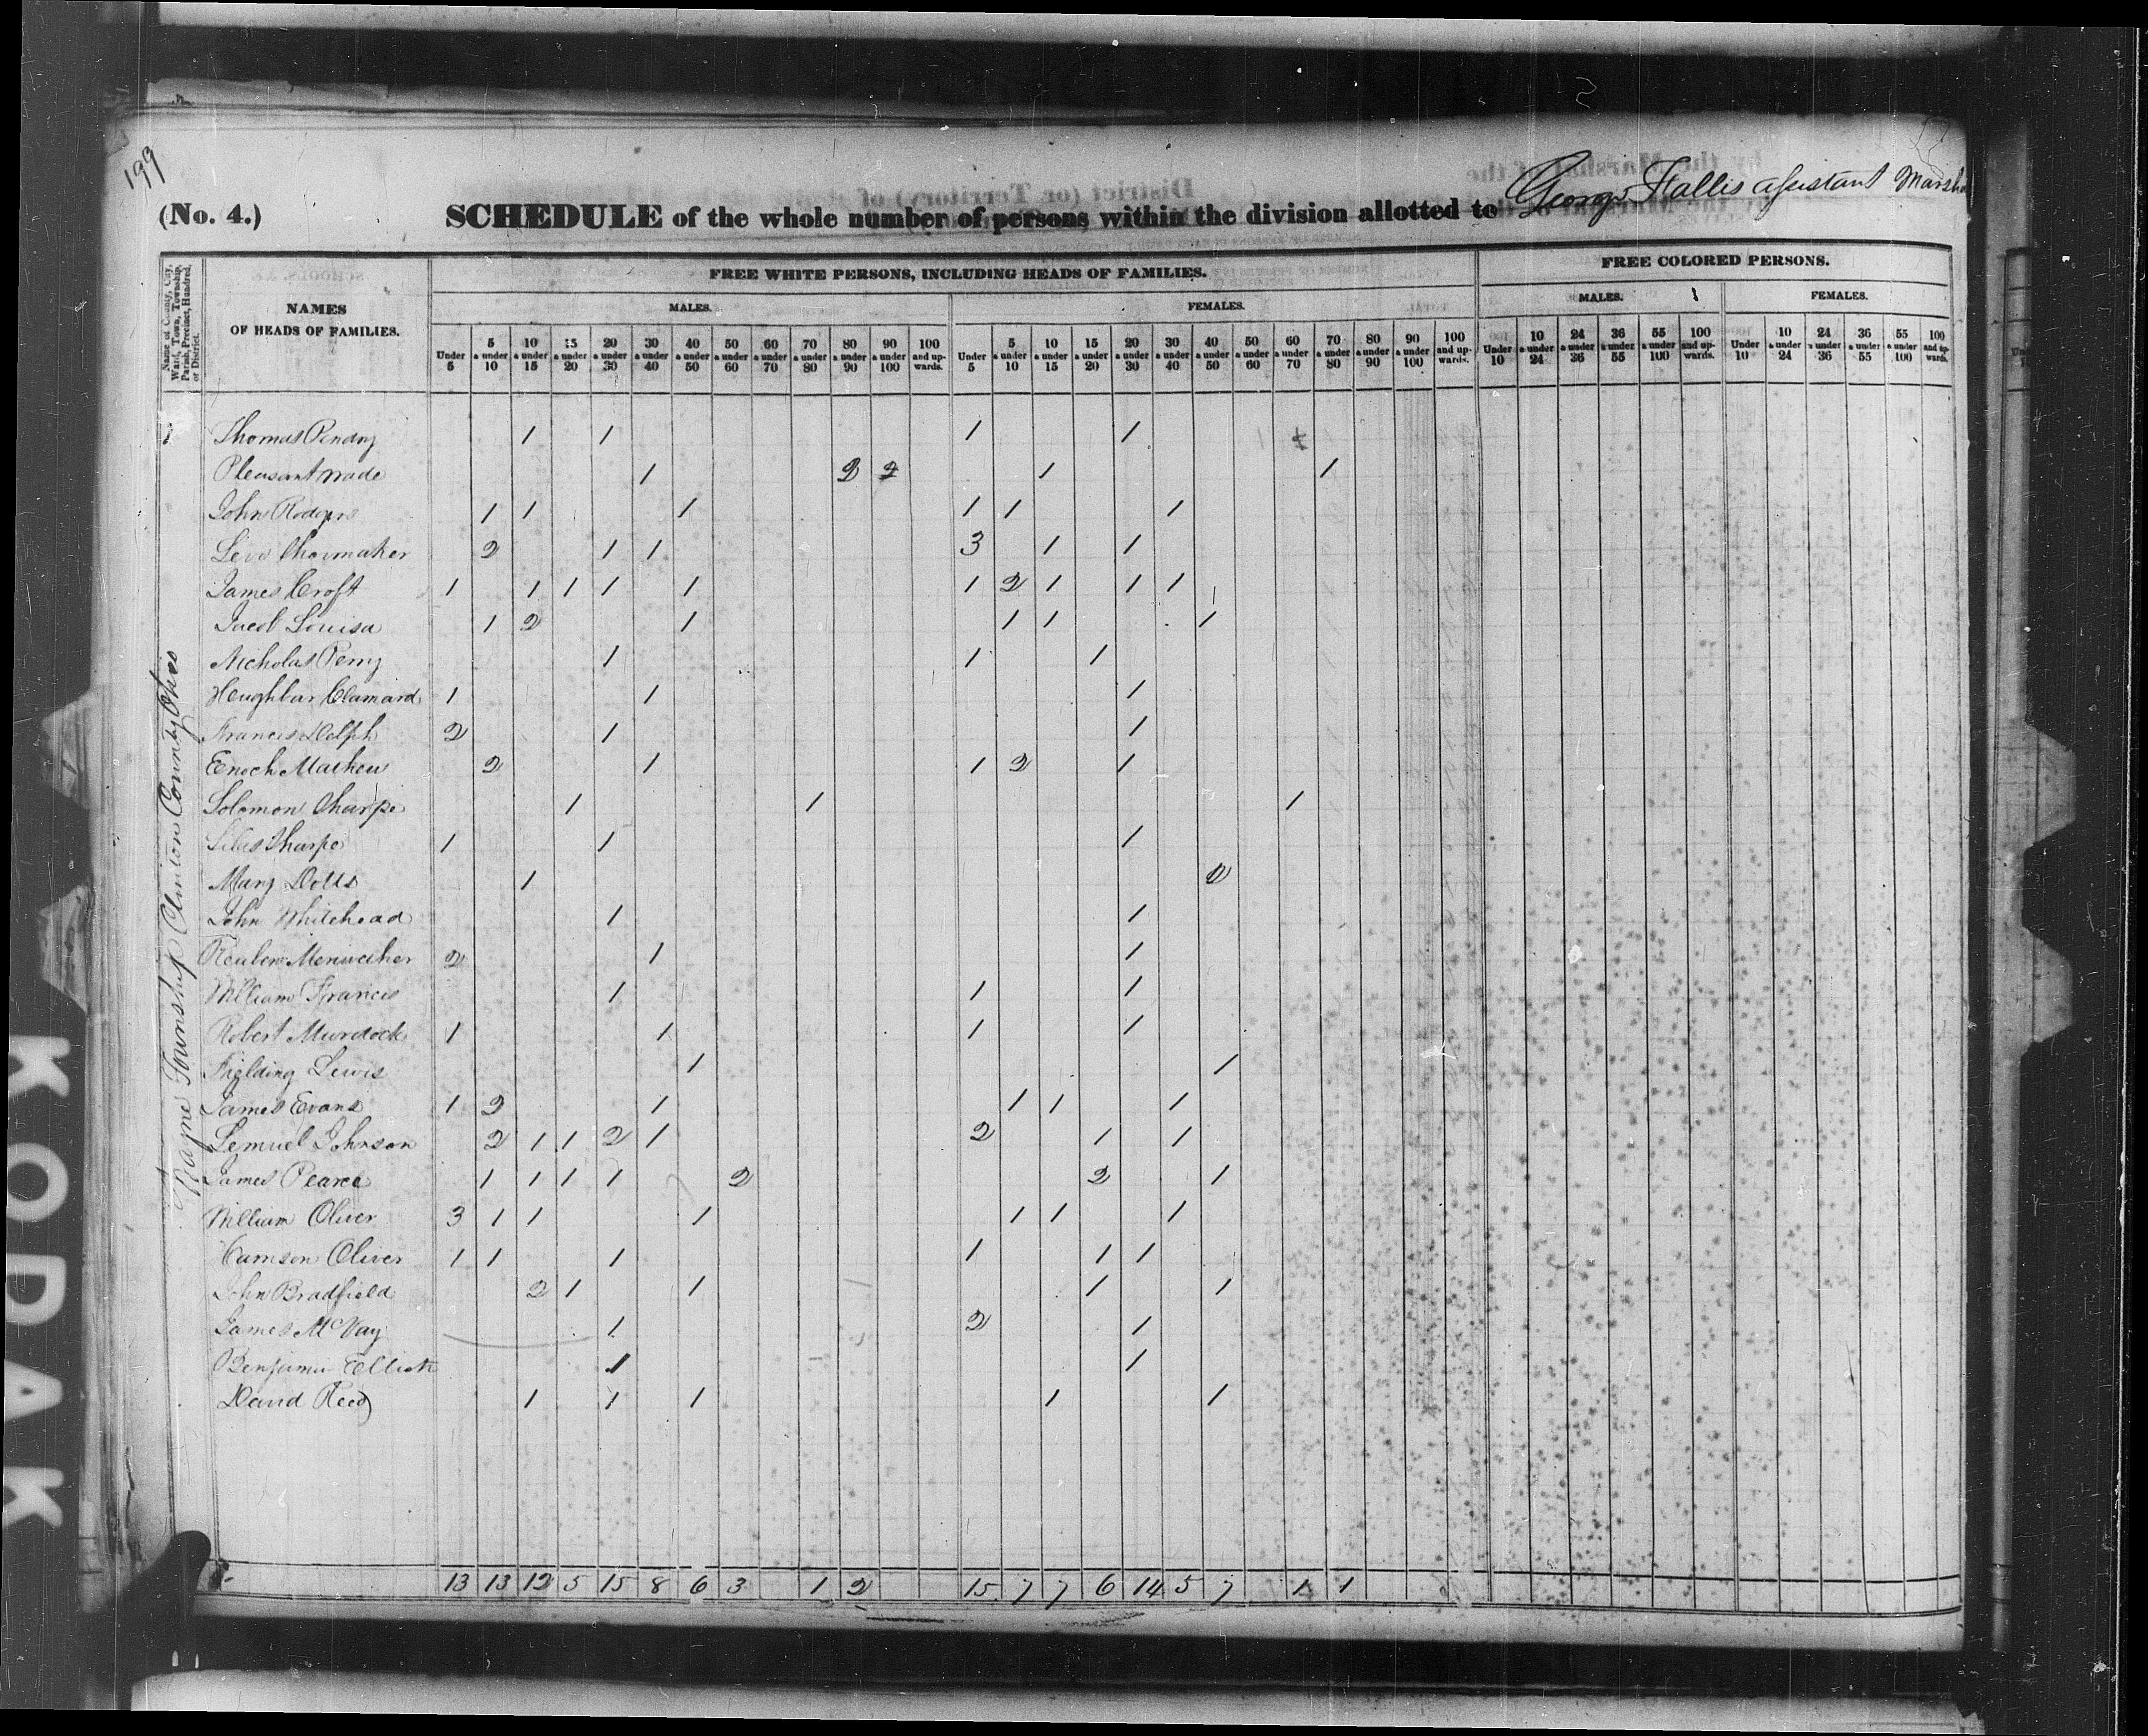 199
(No. 4.)
SCHEDULE of the whole number of persons within the division allotted to George Fallis assistant Marsha
Name of County, City, Ward, Town, Township, Parish, Precinct, Hundred, or District.
NAMES
OF HEADS OF FAMILIES.
FREE WHITE PERSONS, INCLUDING HEADS OF FAMILIES.
FREE COLORED PERSONS.
MALES. FEMALES. MALES. FEMALES.
Under 5
5 & under 10
10 & under 15
15 & under 20
20 & under 30
30 & under 40
40 & under 50
50 & under 60
60 & under 70
70 & under 80
80 & under 90
90 & under 100
100 and upwards.
Under 5
5 & under 10
10 & under 15
15 & under 20
20 & under 30
30 & under 40
40 & under 50
50 & under 60
60 & under 70
70 & under 80
80 & under 90
90 & under 100
100 and upwards.
Under 10
10 & under 24
24 & under 36
36 & under 55
55 & under 100
100 and upwards.
Under 10
10 & under 24
24 & under 36
36 & under 55
55 & under 100
100 and upwards.
Township Clinton County Ohio
Thomas Pendry 1 1 1 1
Pleasant Wade 1 2 2 1 1
John Rodgers 1 1 1 1 1 1
Shoemaker 2 1 1 3 1 1
James Croft 1 1 1 1 1 1 2 1 1 1 1
Jacob Louisa 1 2 1 1 1 1
Nicholas Perry 1 1 1
1 1 1
Francis Delph 2 1 1
Enoch Mathew 2 1 1 2 1
Solomon Sharpe 1 1 1
Sharpe 1 1 1
Mary Dolls 1 2
John Whitehead 1 1
Reuben Meriweather 2 1 1
William Francis 1 1 1
Robert Murdock 1 1 1 1
Fielding Lewis 1 1
James Evans 1 2 1 1 1 1
Lemuel Johnson 2 1 1 2 1 2 1 1
James Pearce 1 1 1 1 2 2 1
William Oliver 3 1 1 1 1 1 1
Oliver 1 1 1 1 1 1
John Bradfield 2 1 1 1 1
James McVay 1 2 1
Benjamin Elliott 1 1
David Reed 1 1 1 1 1
13 13 12 5 15 8 6 3 1 2 15 7 7 6 14 5 7 1 1
KODAK